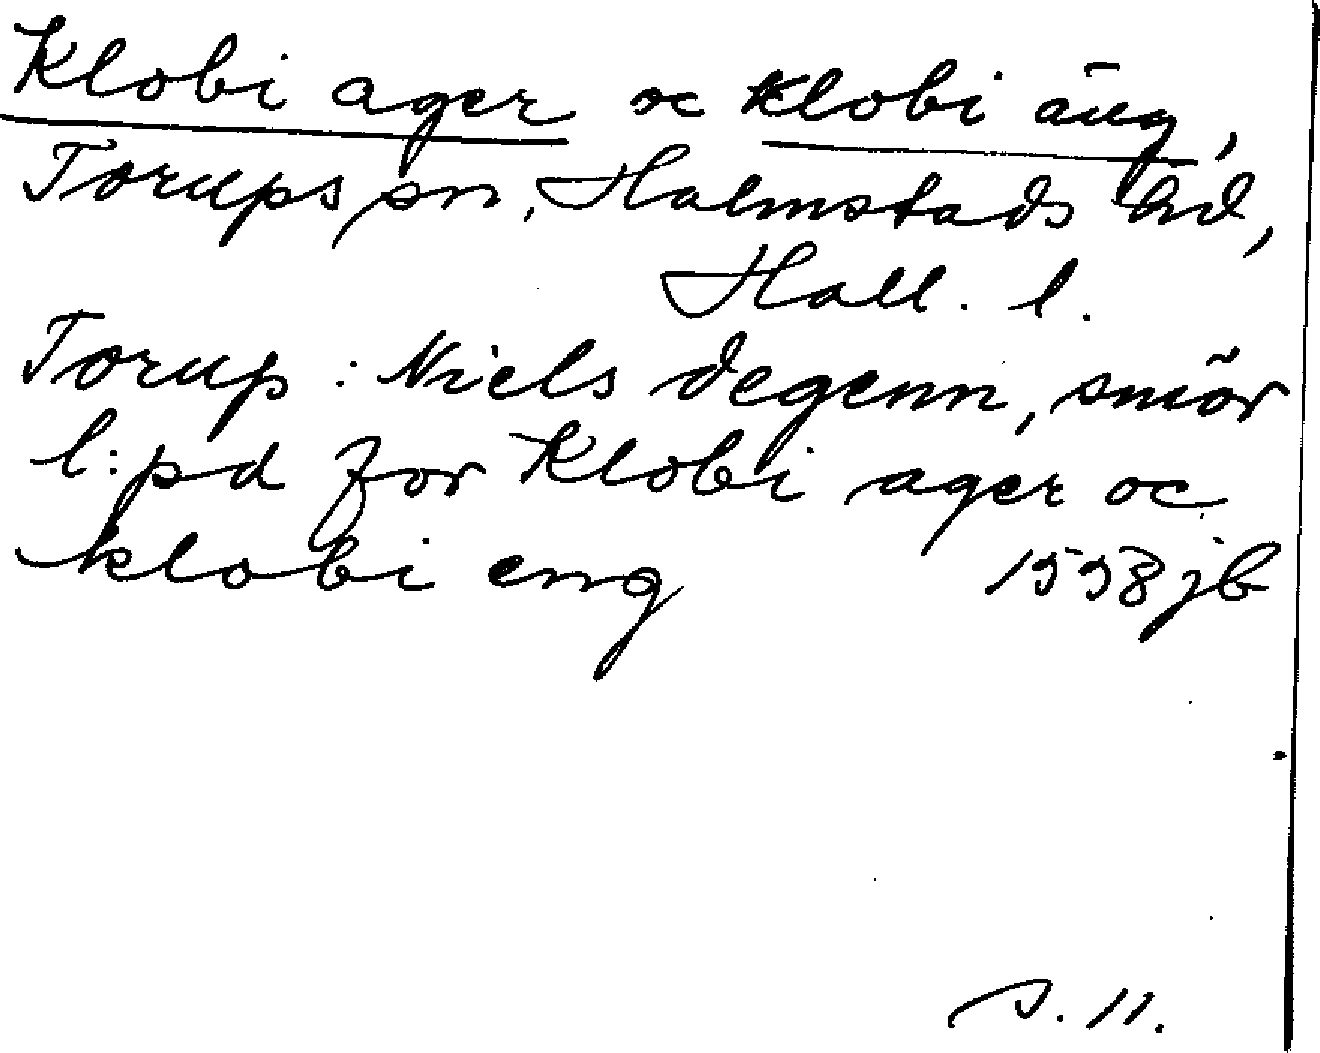 Klobi ager oc Klobi äng,
Torups sn, Halmstads hd,
Hall. l.
Torup: Niels degenn, smör
l: pd for Klobi ager oc
klobi eng 1558 jb
s. 11.